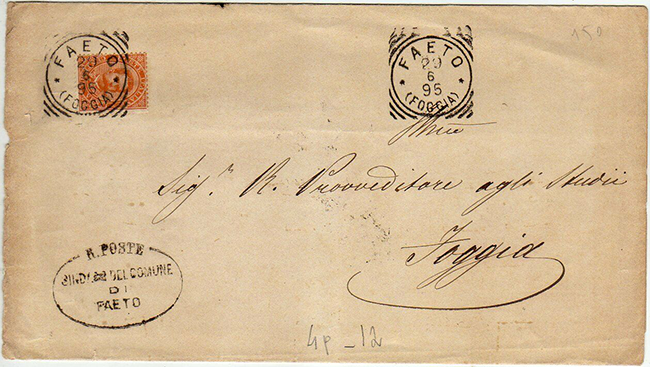 FAETO
20
6
95
(FOGGIA)
FAETO
20
6
95
(FOGGIA)
150
Sig.r R. Provveditore agli Studii
Foggia
R. POSTE
SINDACO DEL COMUNE
DI
FAETO
4p - 12